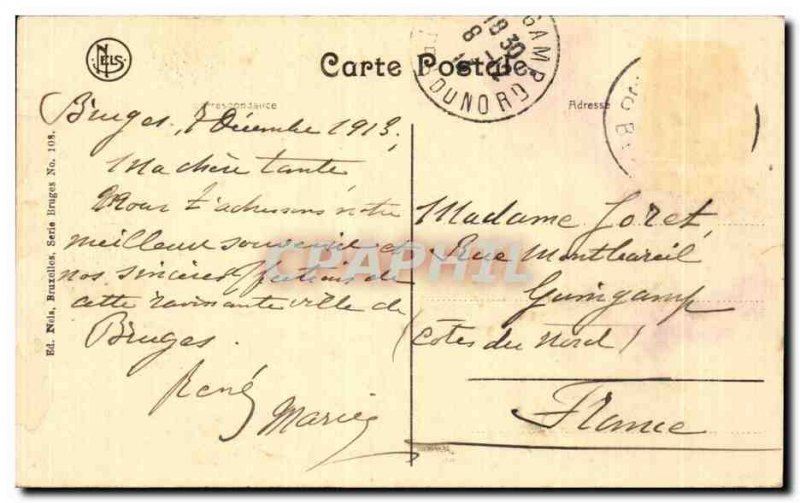 NELS
Carte Postale
Correspondance
Adresse
Ed. Nels, Bruxelles, Serie Bruges No. 108.
GUINGAMP
18 30
8
DU NORD
Bruges, 7 Décembre 1913,
Ma chère tante
Nous t'adressons notre
meilleur souvenir et
nos sincères
cette ravissante ville de
Bruges.
René
Marie
Madame Joret,
Rue Montbareil
Guingamp
(Côtes du Nord)
France
CPAPHIL